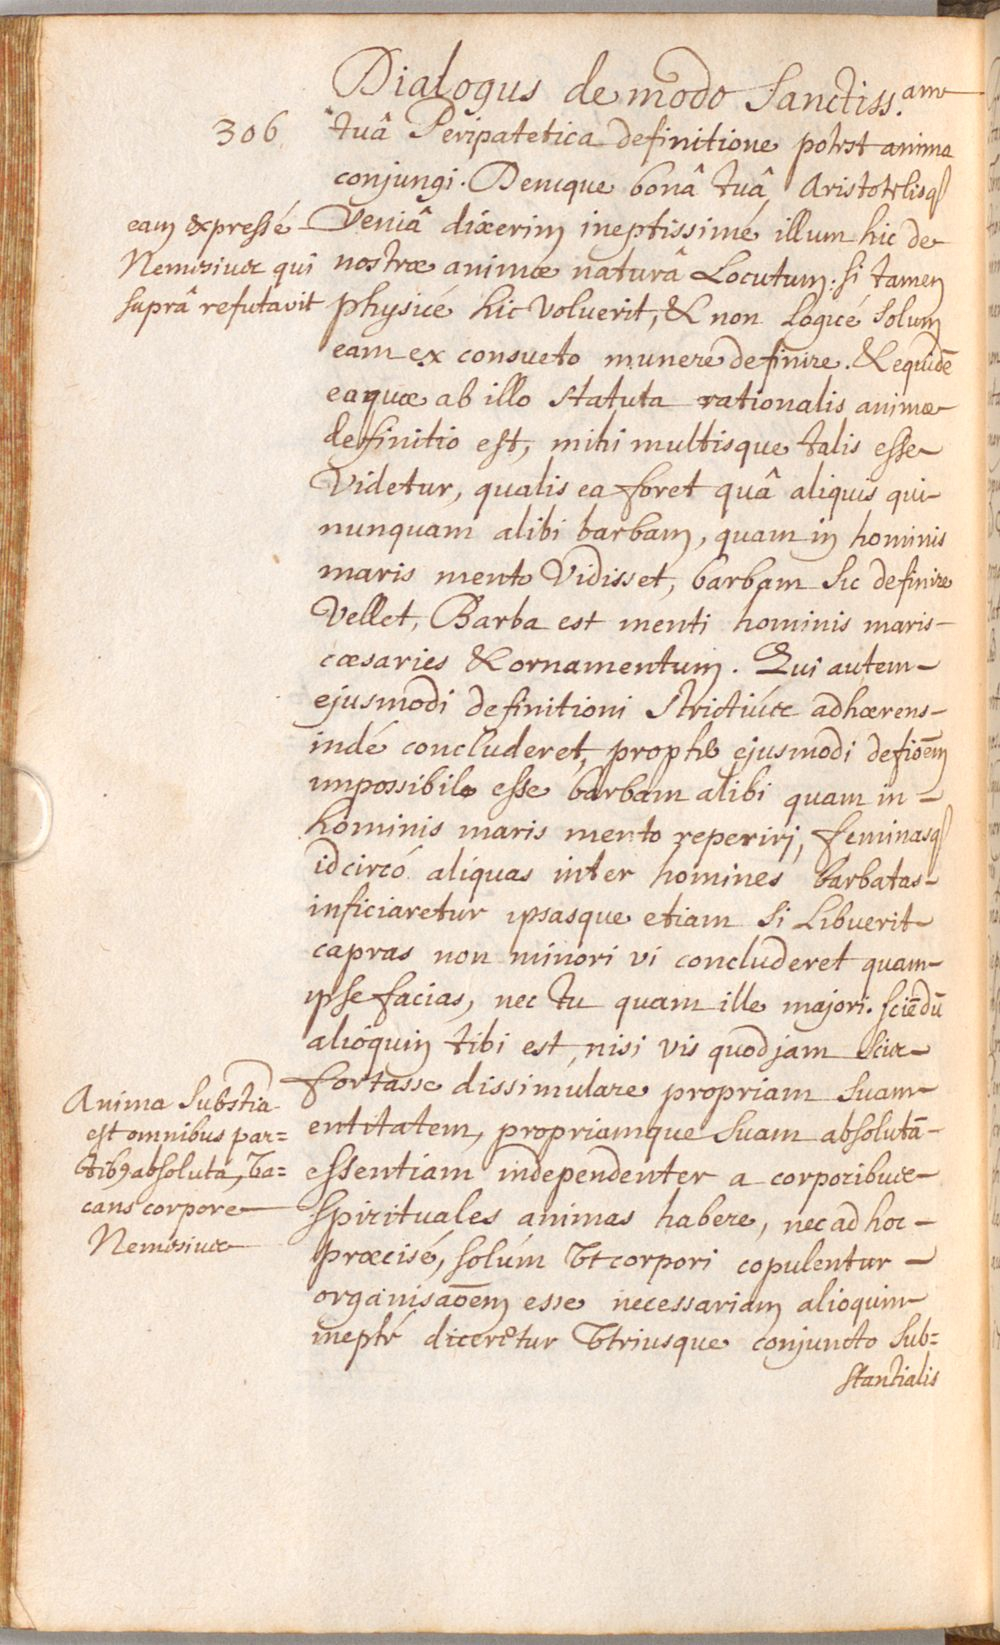 Dialogus de modo Sanctiss. ame
306
tuâ Peripatetica definitione potest anima
conjungi. Denique bonâ tuâ Aristotelisq
Veniâ dixerim ineptissimé illum hic de
nostræ animæ naturâ Locutum. si tamen
physicé hic Voluerit, & non Logicé Solum
eam ex consueto munere definire. & equidē
ea quæ ab illo statuta rationalis animæ
definitio est, mihi multisque talis esse
Videtur, qualis ea foret quâ aliquis qui
nunquam alibi barbam, quam in hominis
maris mento Vidisset, barbam Sic definire
Vellet, Barba est menti hominis maris
cæsaries & ornamentum. Qui autem
ejusmodi definitioni strictiús adhærens
indé concluderet, propter ejusmodi defiōem
impossibile esse barbam alibi quam in
hominis maris mento reperiri, feminasq
idcircó aliquas inter homines barbatas
inficiaretur ipsasque etiam Si Libuerit
capras non minori vi concluderet quam
ipse facias, nec tu quam ille majori. sciēdū
alióquin tibi est, nisi vis quod jam scis
fortasse dissimulare propriam Suam
entitatem, propriamque Suam absolutā
essentiam independenter a corporibus
Spirituales animas habere, nec ad hoc
præcisé, solúm Ut corpori copulentur
organisaōem esse necessariam alioquin
ineptè diceretur Utriusque conjuncto Sub=
stantialis
eam expressé
Nemesius qui
suprâ refutavit
Anima Substia
est omnibus par=
tib9 absoluta, Va=
cans corpore
Nemesius